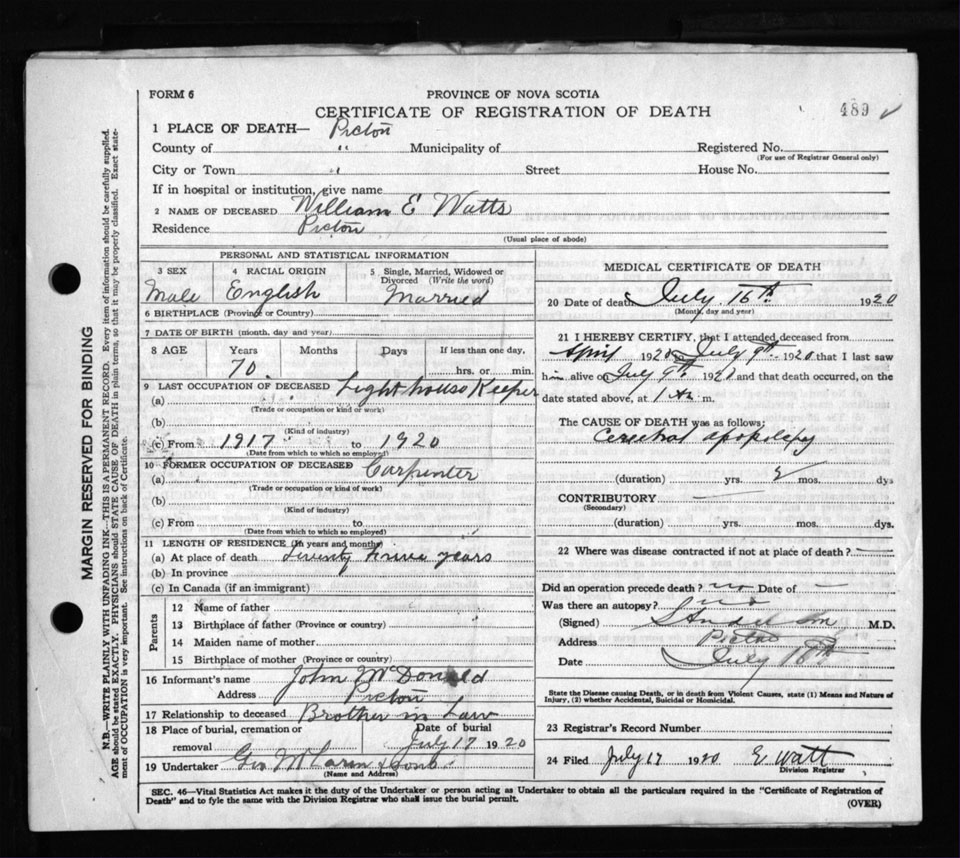 FORM 6
PROVINCE OF NOVA SCOTIA
CERTIFICATE OF REGISTRATION OF DEATH
489
1 PLACE OF DEATH— Pictou
County of " Municipality of Registered No.
(For use of Registrar General only)
City or Town " Street House No.
If in hospital or institution, give name
2 NAME OF DECEASED William E Watts
Residence Pictou
(Usual place of abode)
PERSONAL AND STATISTICAL INFORMATION
3 SEX 4 RACIAL ORIGIN 5 Single, Married, Widowed or Divorced (Write the word)
Male English Married
6 BIRTHPLACE (Province or Country)
7 DATE OF BIRTH (month, day and year)
8 AGE Years Months Days If less than one day,
70 hrs. or min.
9 LAST OCCUPATION OF DECEASED Light house Keeper
(a)
(Trade or occupation or kind of work)
(b)
(Kind of industry)
(c) From 1917 to 1920
(Date from which to which so employed)
10 FORMER OCCUPATION OF DECEASED Carpenter
(a)
(Trade or occupation or kind of work)
(b)
(Kind of industry)
(c) From to
(Date from which to which so employed)
11 LENGTH OF RESIDENCE (In years and months)
(a) At place of death years
(b) In province
(c) In Canada (if an immigrant)
Parents
12 Name of father
13 Birthplace of father (Province or country)
14 Maiden name of mother
15 Birthplace of mother (Province or country)
16 Informant's name John McDonald
Address Pictou
17 Relationship to deceased Brother in Law
18 Place of burial, cremation or Date of burial
removal July 17 1920
19 Undertaker Geo & Sons
(Name and Address)
MEDICAL CERTIFICATE OF DEATH
20 Date of death July 16th 1920
(Month, day and year)
21 I HEREBY CERTIFY, that I attended deceased from
April 1920 to July 9th 1920 that I last saw
him alive on July 9th 1920 and that death occurred, on the
date stated above, at 1 m.
The CAUSE OF DEATH was as follows:
Cerebral apoplexy
(duration) yrs. mos. dys
CONTRIBUTORY
(Secondary)
(duration) yrs. mos. dys.
22 Where was disease contracted if not at place of death?
Did an operation precede death? no Date of —
Was there an autopsy? no
(Signed) M.D.
Address Pictou
Date July 16th
State the Disease causing Death, or in death from Violent Causes, state (1) Means and Nature of
Injury, (2) whether Accidental, Suicidal or Homicidal.
23 Registrar's Record Number
24 Filed July 17 1920 E Watt
Division Registrar
SEC. 46—Vital Statistics Act makes it the duty of the Undertaker or person acting as Undertaker to obtain all the particulars required in the "Certificate of Registration of
Death" and to fyle the same with the Division Registrar who shall issue the burial permit.
(OVER)
MARGIN RESERVED FOR BINDING
N.B.—WRITE PLAINLY WITH UNFADING INK—THIS IS A PERMANENT RECORD. Every item of information should be carefully supplied.
AGE should be stated EXACTLY. PHYSICIANS should STATE CAUSE OF DEATH in plain terms, so that it may be properly classified. Exact state-
ment of OCCUPATION is very important. See instructions on back of Certificate.